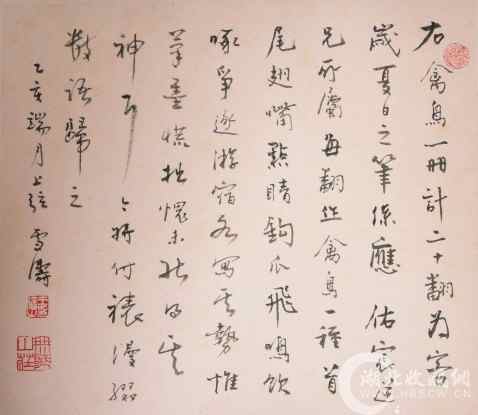 右禽鳥一冊計二十翻為客
歲夏日之筆係應佑宸
兄所屬每翻作禽鳥一種首
尾翅嘴點睛鉤爪飛鳴飲
啄爭逐游宿各寫其勢惟
筆墨荒拙愧未能得其
神耳今將付裱漫綴
數語歸之
乙亥端月上弦雪濤
湖北收藏网
WWW.HBSCW.CN